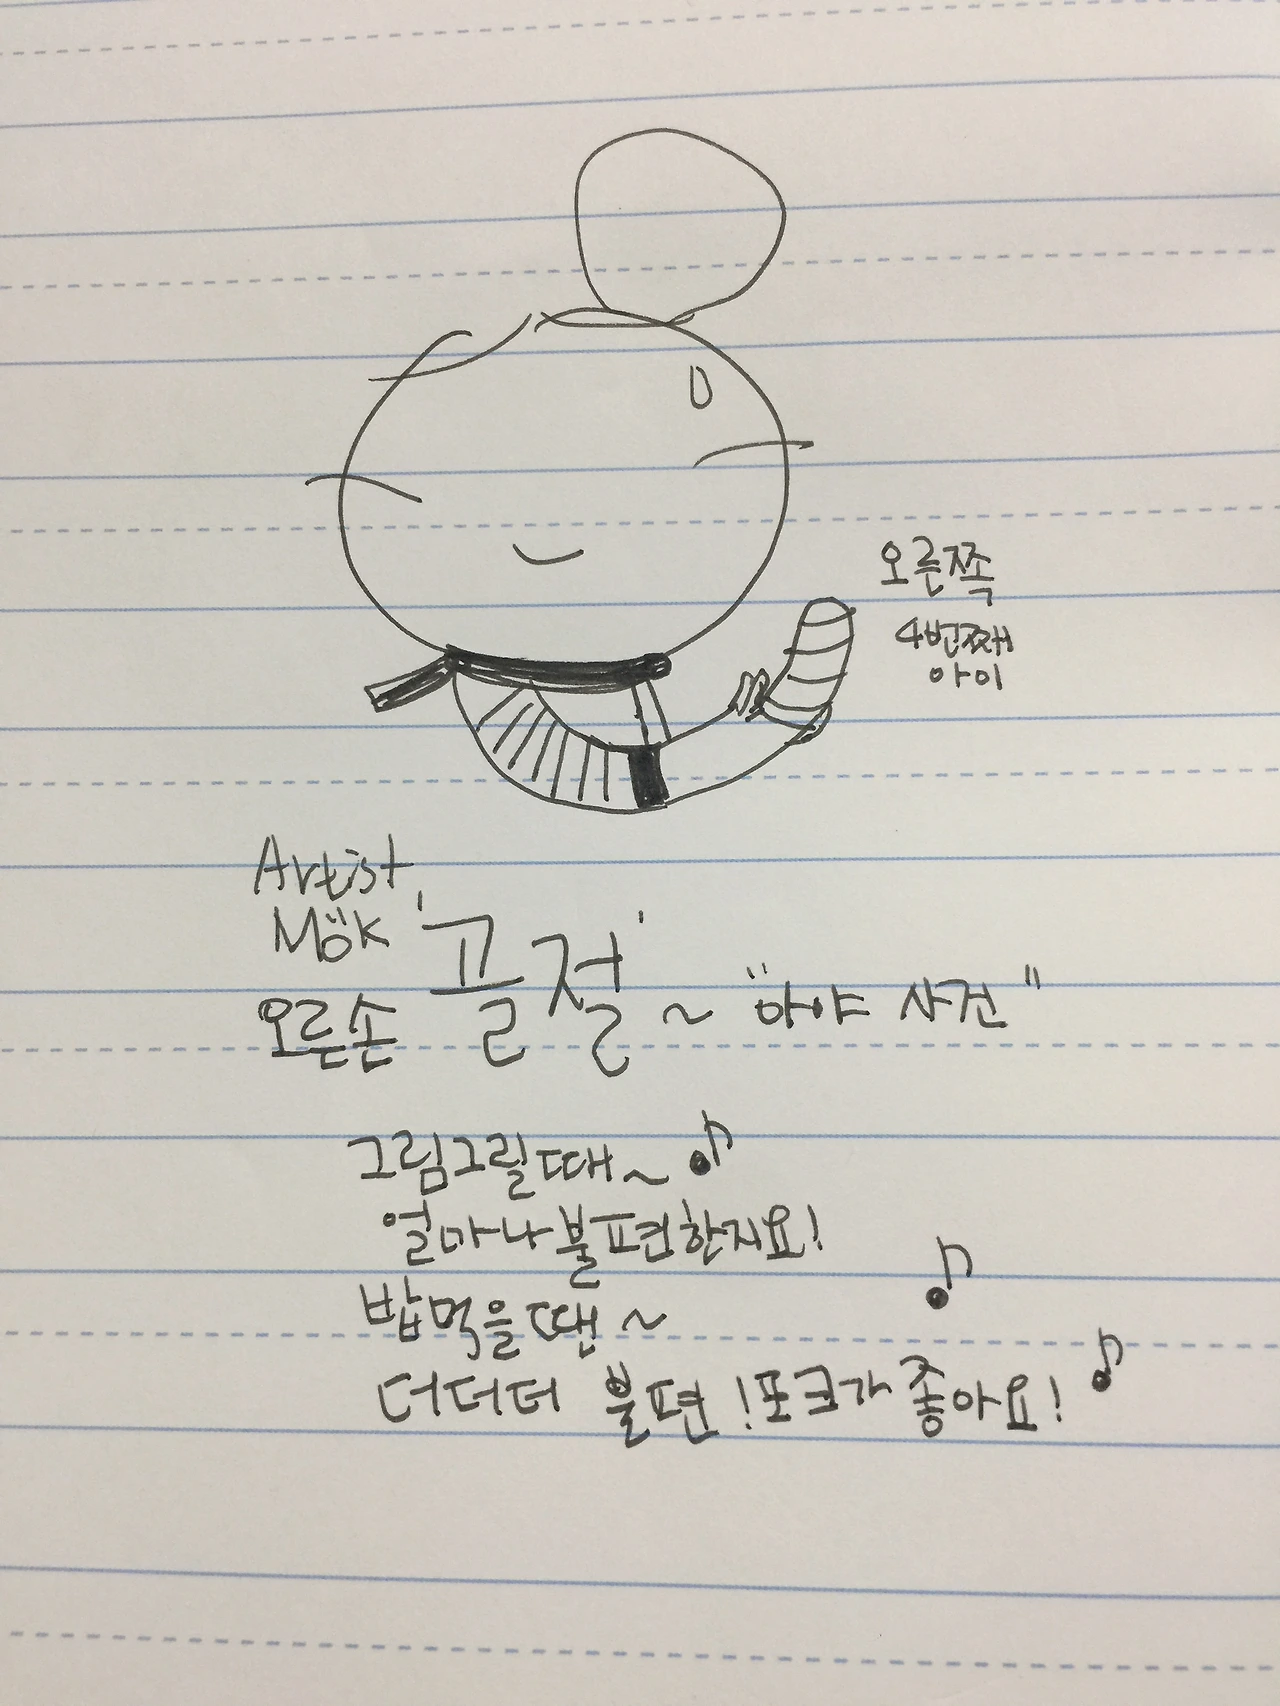 오른쪽
4번째
아이
Artist
Mök
오른손 '골절' ~ "아야 사건"
그림그릴때~♪
얼마나불편한지요!
밥먹을땐~ ♪
더더더 불편! 포크가좋아요! ♪